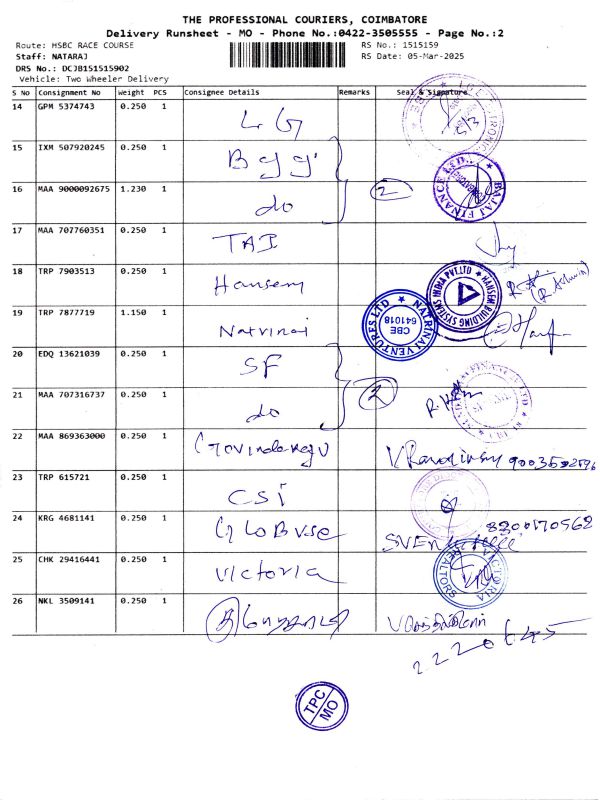 THE PROFESSIONAL COURIERS, COIMBATORE
Delivery Runsheet - MO - Phone No.:0422-3505555 - Page No.:2
Route: HSBC RACE COURSE RS No.: 1515159
Staff: NATARAJ RS Date: 05-Mar-2025
DRS No.: DCJB151515902
Vehicle: Two Wheeler Delivery
S No Consignment No Weight PCS Consignee Details Remarks Seal & Signature
14 GPM 5374743 0.250 1 LG 5/3
15 IXM 507920245 0.250 1
16 MAA 9000092675 1.230 1 do 2 BAJAJ FINANCE LTD.
17 MAA 707760351 0.250 1
18 TRP 7903513 0.250 1 Hansen HANSEN BUILDING SYSTEMS INDIA PVT.LTD
19 TRP 7877719 1.150 1 Natrinai NATRINAI VENTURES LTD CBE 641018
20 EDQ 13621039 0.250 1 SF
21 MAA 707316737 0.250 1 do 2
22 MAA 869363000 0.250 1
23 TRP 615721 0.250 1 CSi
24 KRG 4681141 0.250 1 8300170562
25 CHK 29416441 0.250 1 Victoria VICTORIA REALTORS
26 NKL 3509141 0.250 1
TPC
MO